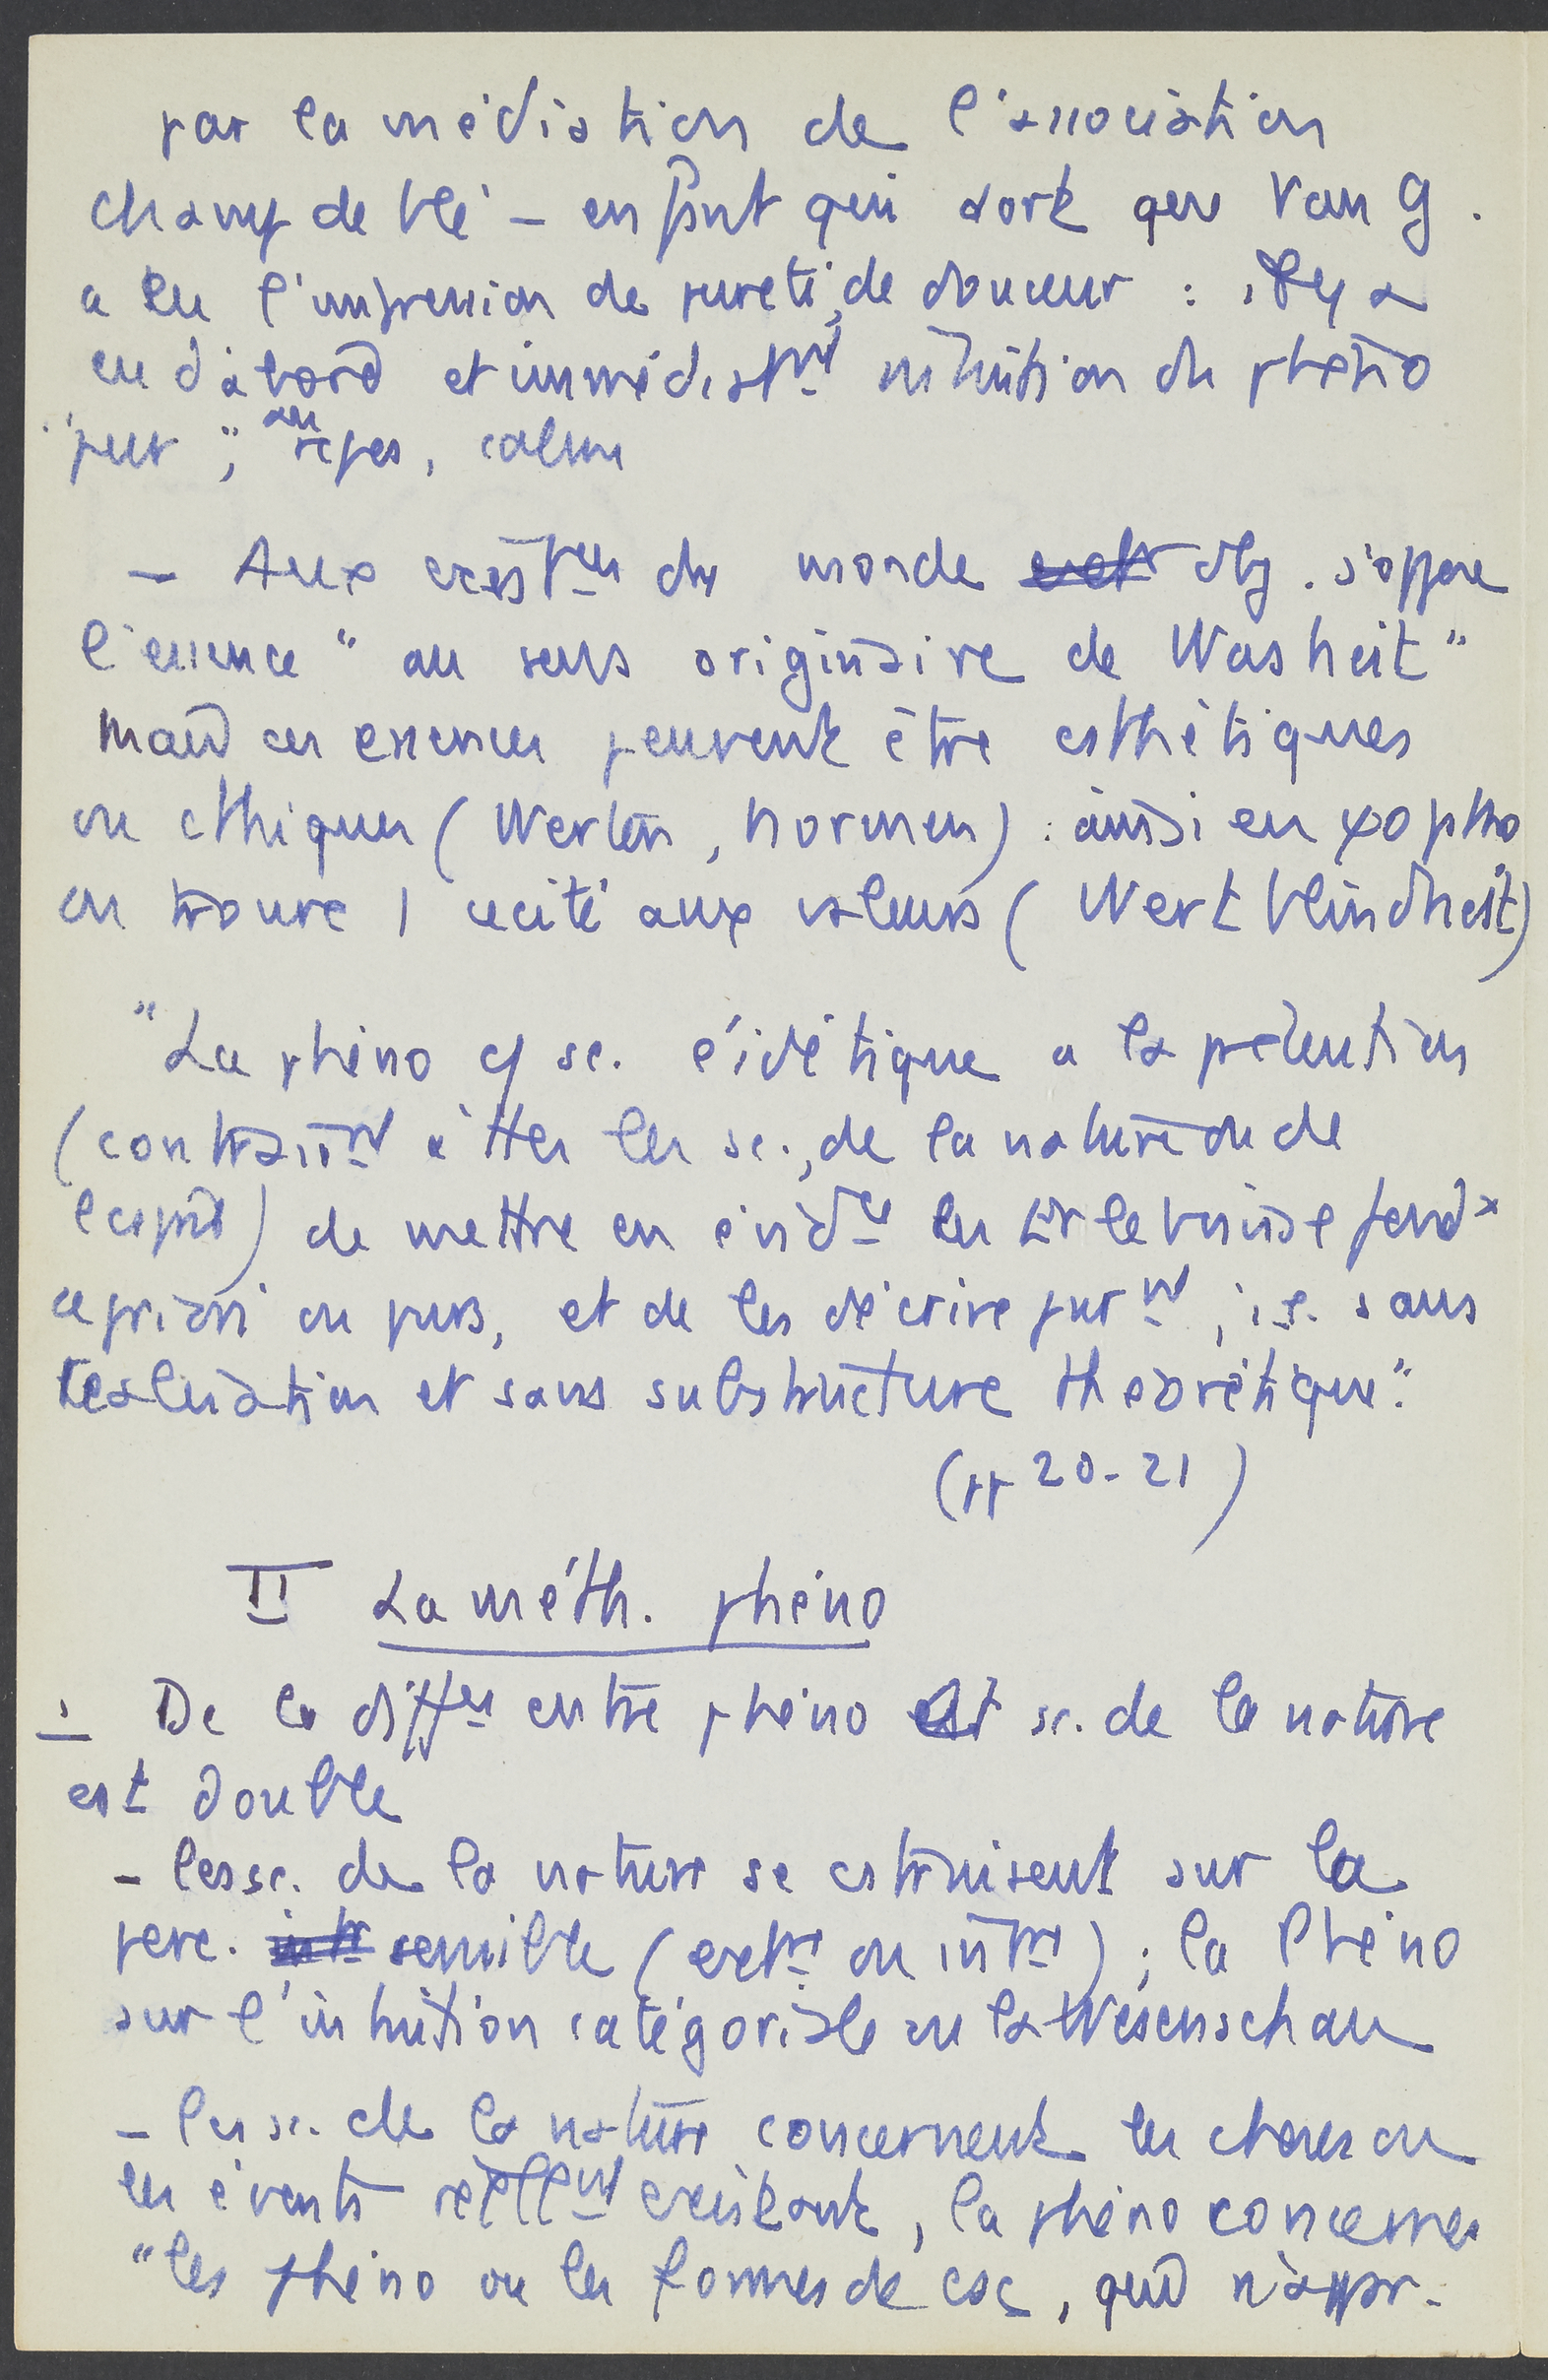 par la médiation de l'association
champ de blé - enfant qui dort que Van G.
a eu l'impression de pureté, de douceur : il y a
eu d'abord et immédiatmt intuition du phéno
"pur", au repos, calme
- Aux existces du monde obj. s'oppose
l'essence "au sens originaire de Washeit"
mais ces essences peuvent être esthétiques
ou éthiques (Werten, Normen) : ainsi en
on trouve 1 cécité aux valeurs (Wertblindheit)
"La phéno cô sc. éidétique a la prétention
(contrairmt à ttes les sc., de la nature ou de
l'esprit) de mettre en évidce les
apriori ou purs, et de les décrire purmt, i.e. sans
réalisation et sans substructure théorétique".
(pp 20-21)
II La méth. phéno
1 De la diffce entre phéno et sc. de la nature
est double
- les sc. de la nature se cstruisent sur la
perc. sensible (extne ou intne) ; la Phéno
sur l'intuition catégoriale ou la Wesenschau
- les sc. de la nature concernent les choses ou
les évents réellmt existant, la phéno concerne
"les phéno ou les formes de csc, qui n'appar-